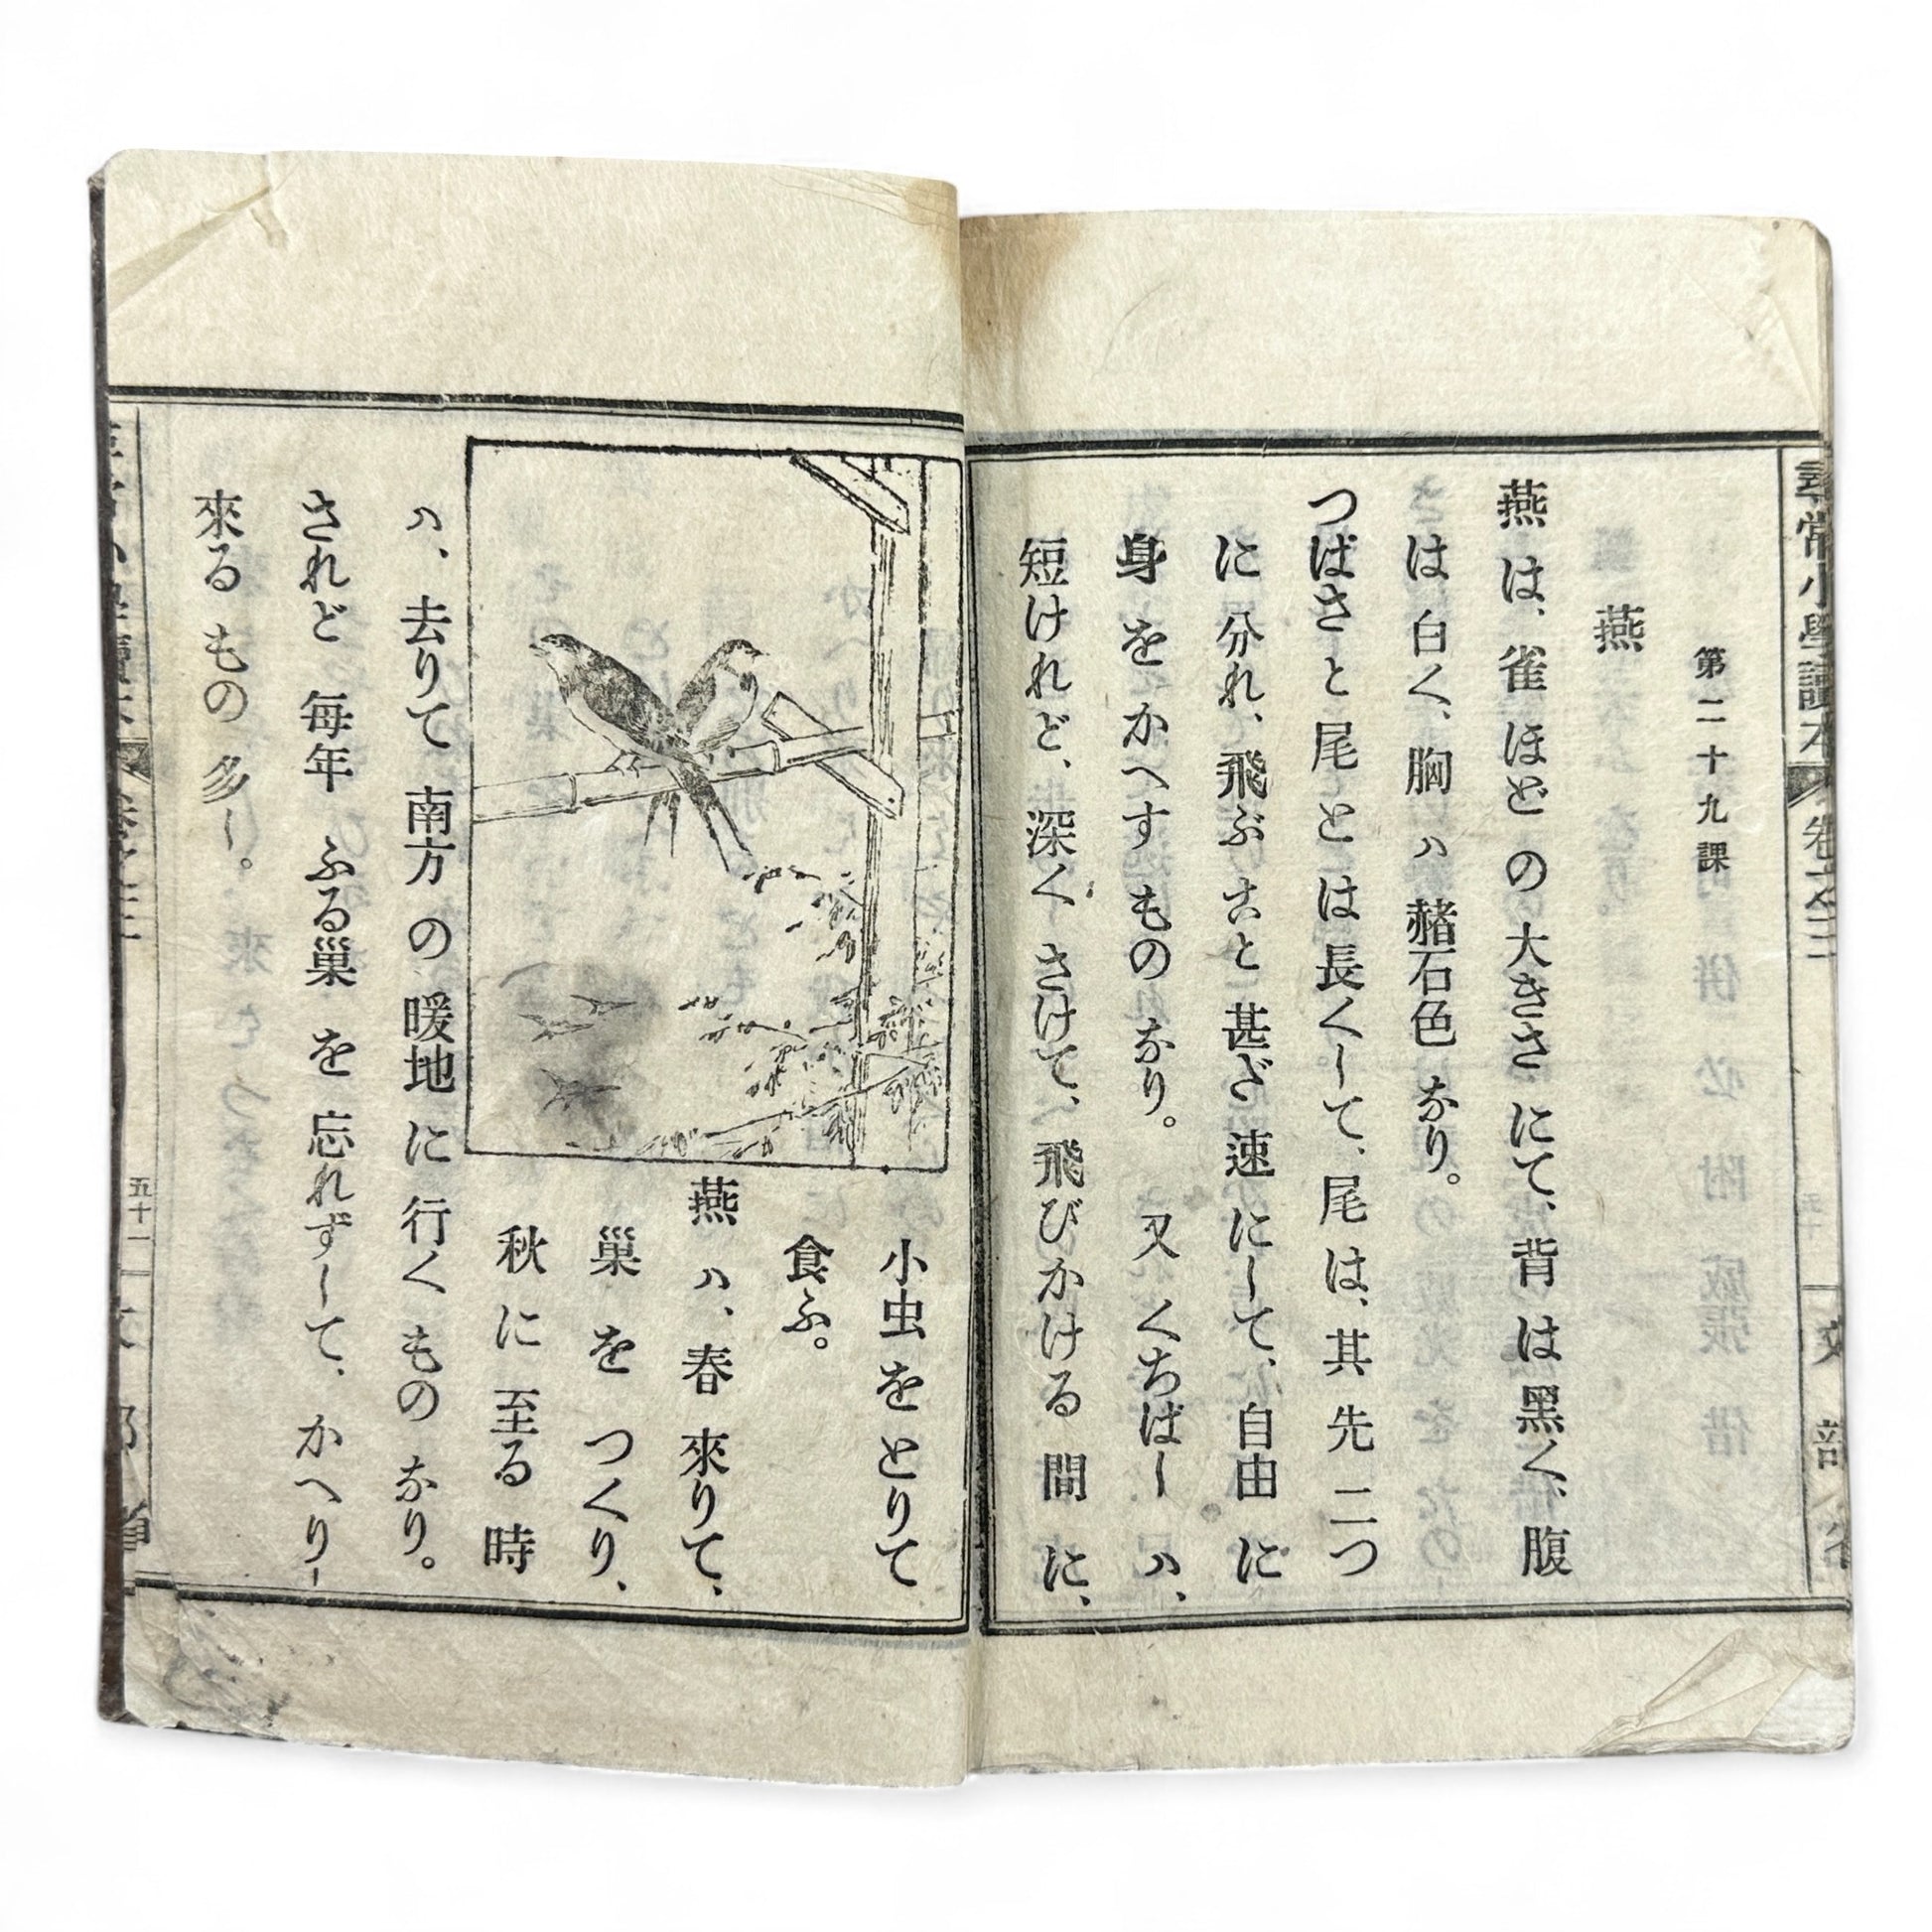 尋常小學讀本 卷之三 文部省
第二十九課
燕
燕は、雀ほどの大きさにて、背は黑く、腹
は白く、胸ハ赭石色なり。
つばさと尾とは長くして、尾は、其先二つ
に分れ、飛ぶこと甚だ速にして、自由に
身をかへすものなり。又くちばしハ、
短けれど、深くさけて、飛びかける間に、
小虫をとりて
食ふ。
燕ハ、春來りて、
巢をつくり、
秋に至る時
ハ、去りて南方の暖地に行くものなり。
されど毎年ふる巢を忘れずして、かへり
來るもの多し。
五十一